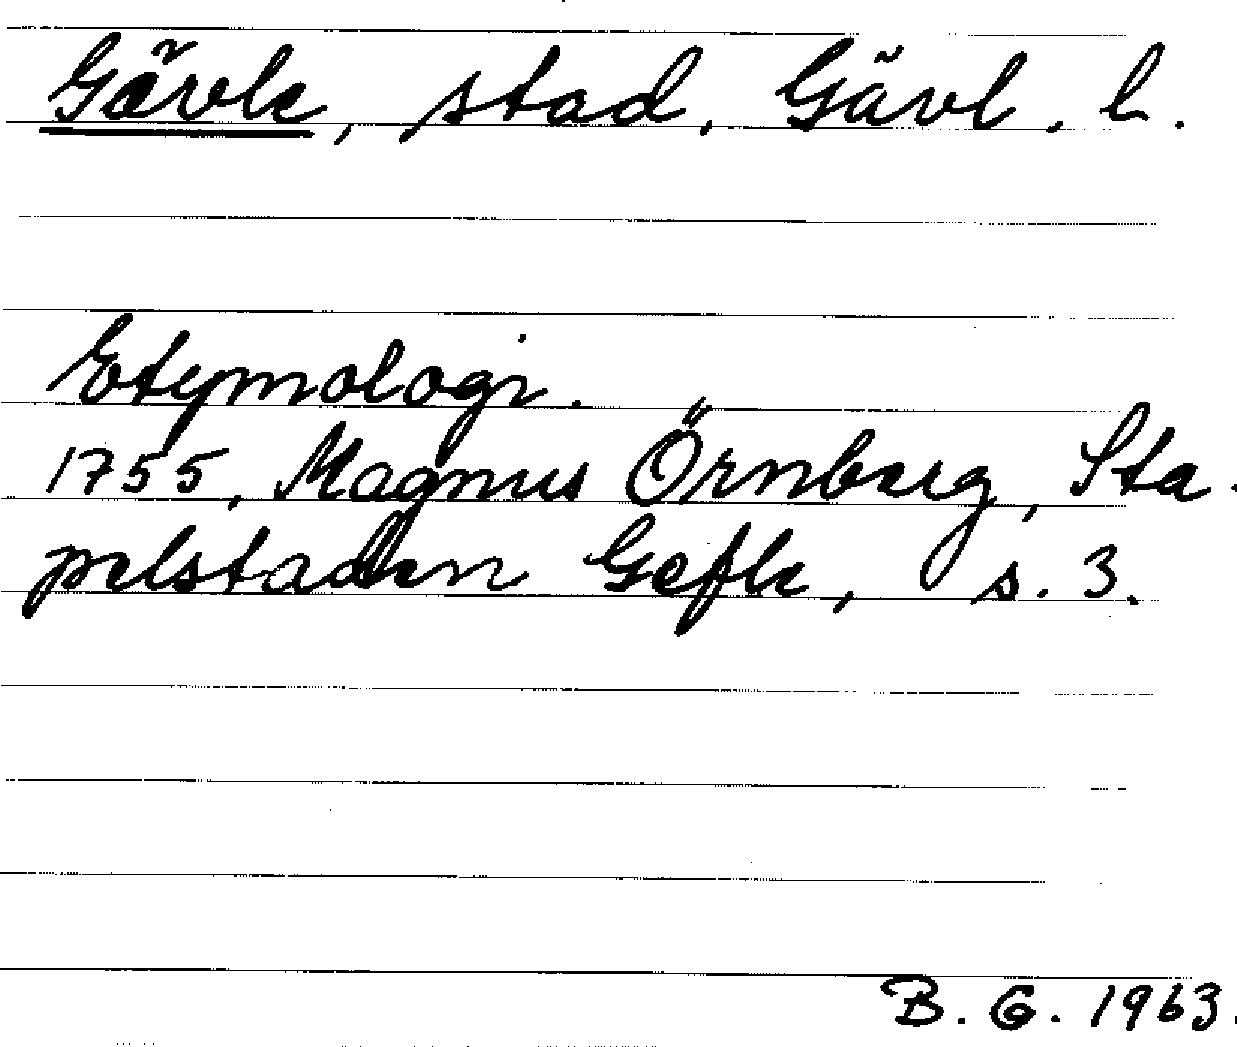 Gävle, stad, Gävl. l.
Etymologi.
1755, Magnus Örnberg, Sta-
pelstaden Gefle, s. 3.
B. G. 1963.